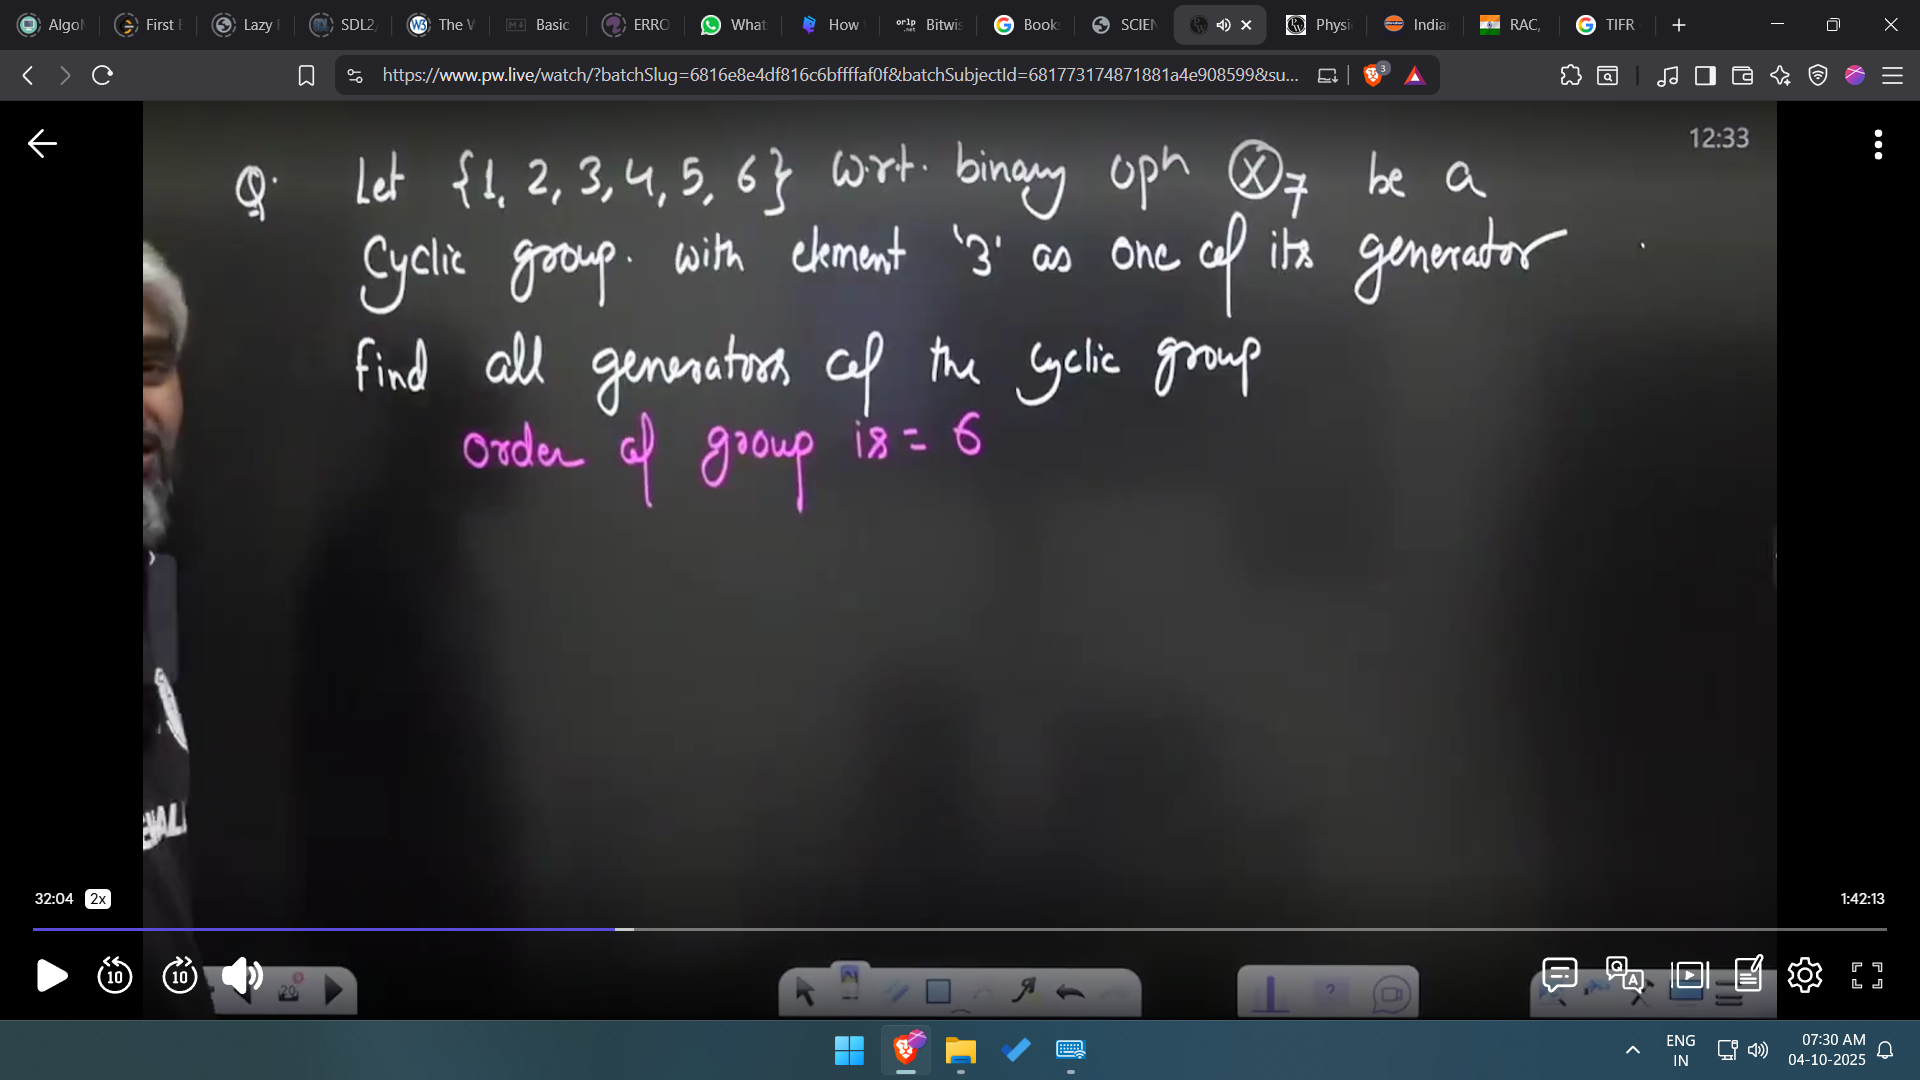 Algo
First
Lazy
SDL2
The
Basic
ERRO
What
How
Bitwis
Book
SCIEN
Physi
India
RAC,
TIFR
https://www.pw.live/watch/?batchSlug=6816e8e4df816c6bffffaf0f&batchSubjectId=681773174871881a4e908599&su...
3
12:33
Q. Let {1, 2, 3, 4, 5, 6} w.r.t. binary opn ⊗7 be a
cyclic group. with element '3' as one of its generator
find all generators of the cyclic group
order of group is = 6
32:04 2x
1:42:13
10 10
20
?
ENG
IN
07:30 AM
04-10-2025